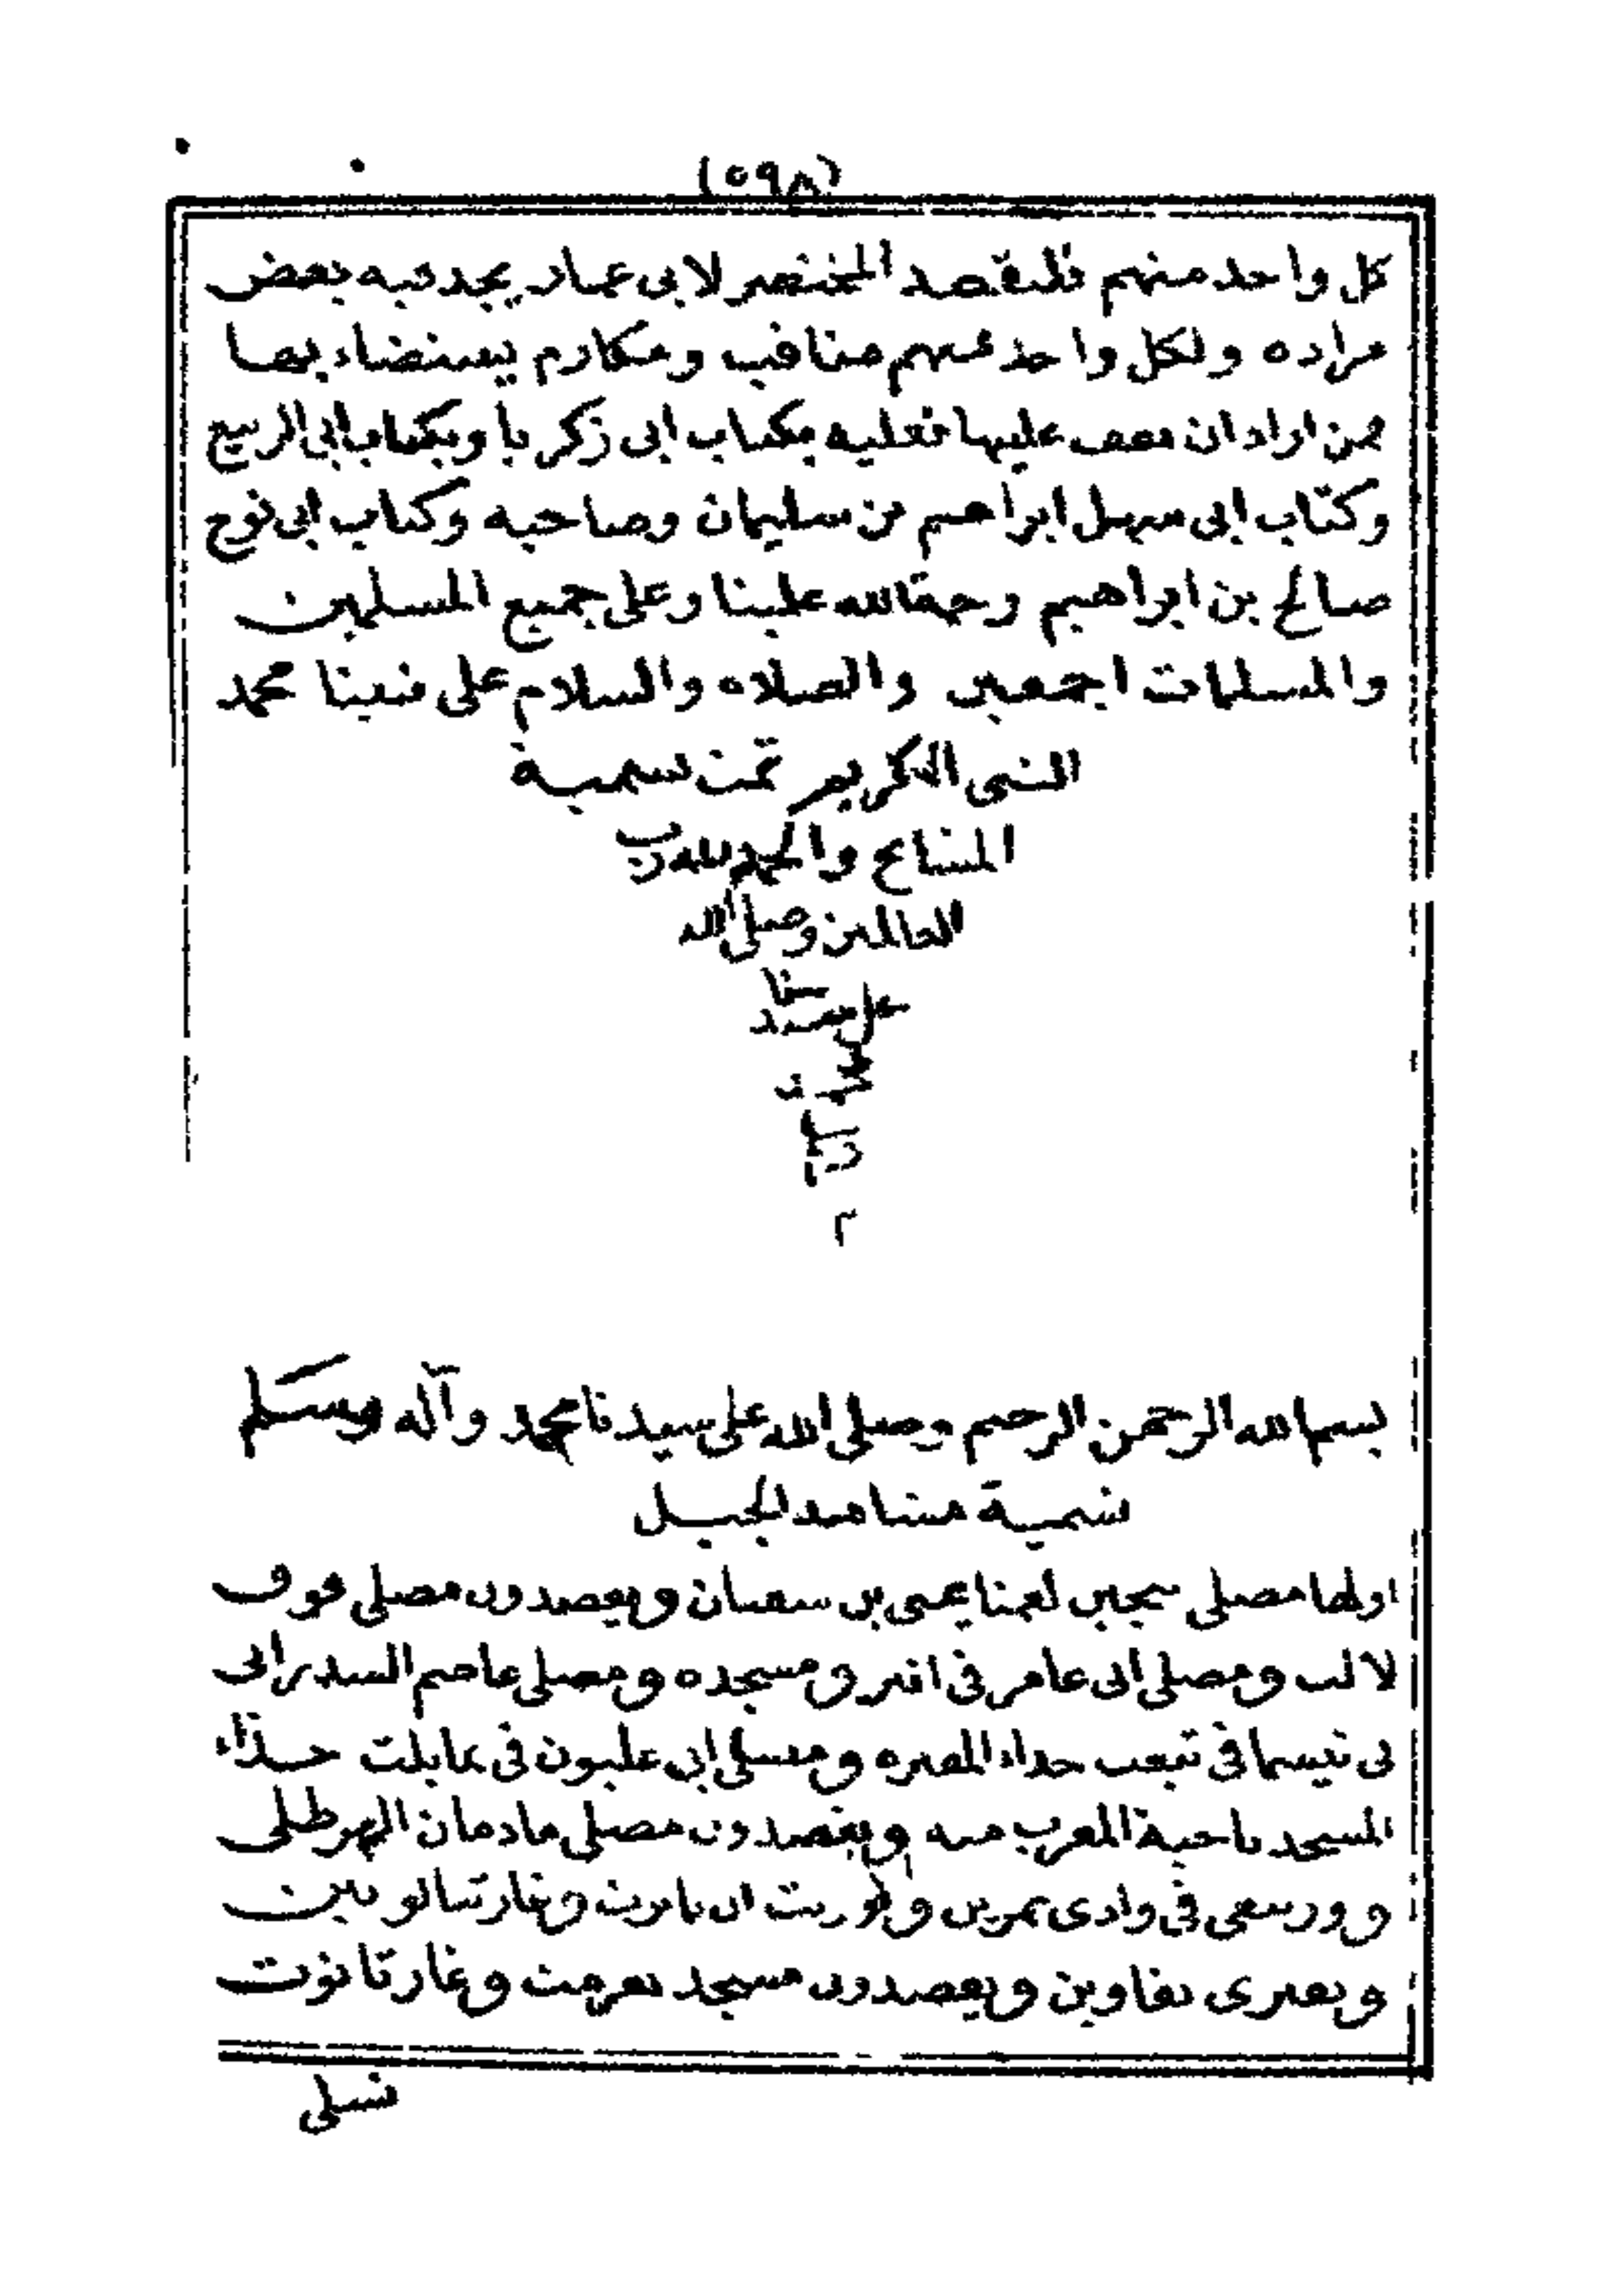 (٥٩٨)
كل واحد منهم فليقصد المختصر لابي عمار يجد فيه بعض
مراده ولكل واحد منهم مناقب ومكارم يستضاء بها
فمن اراد ان يقف عليها فعليه بكتاب ابي زكريا وبكتاب ابي الربيع
وكتاب ابي سهل ابراهيم بن سليمان وصاحبه وكتاب ابي نوح
صالح بن ابراهيم رحمة الله علينا وعلى جميع المسلمين
والمسلمات اجمعين والصلاه والسلام على نبينا محمد
النبي الكريم تمت تسمية
المشايخ والحمد لله رب
العالمين وصلى الله
على سيدنا
محمد
٢
بسم الله الرحمن الرحيم وصلى الله على سيدنا محمد وآله وسلم
تسمية مشاهد الجبل
اولها مصلى لعمنا يحيى بن ويقصدون مصلى فوق
لالت ومصلى ابي عامر في ومسجده ومصلى عاصم السدراتي
في حذاء المقبره ومصلى ابي في حذاء
المسجد ناحية المغرب منه ويقصدون مصلى مادمان الهرطلي
في وادي وغار
ويقصدون مسجد وغار تانوت